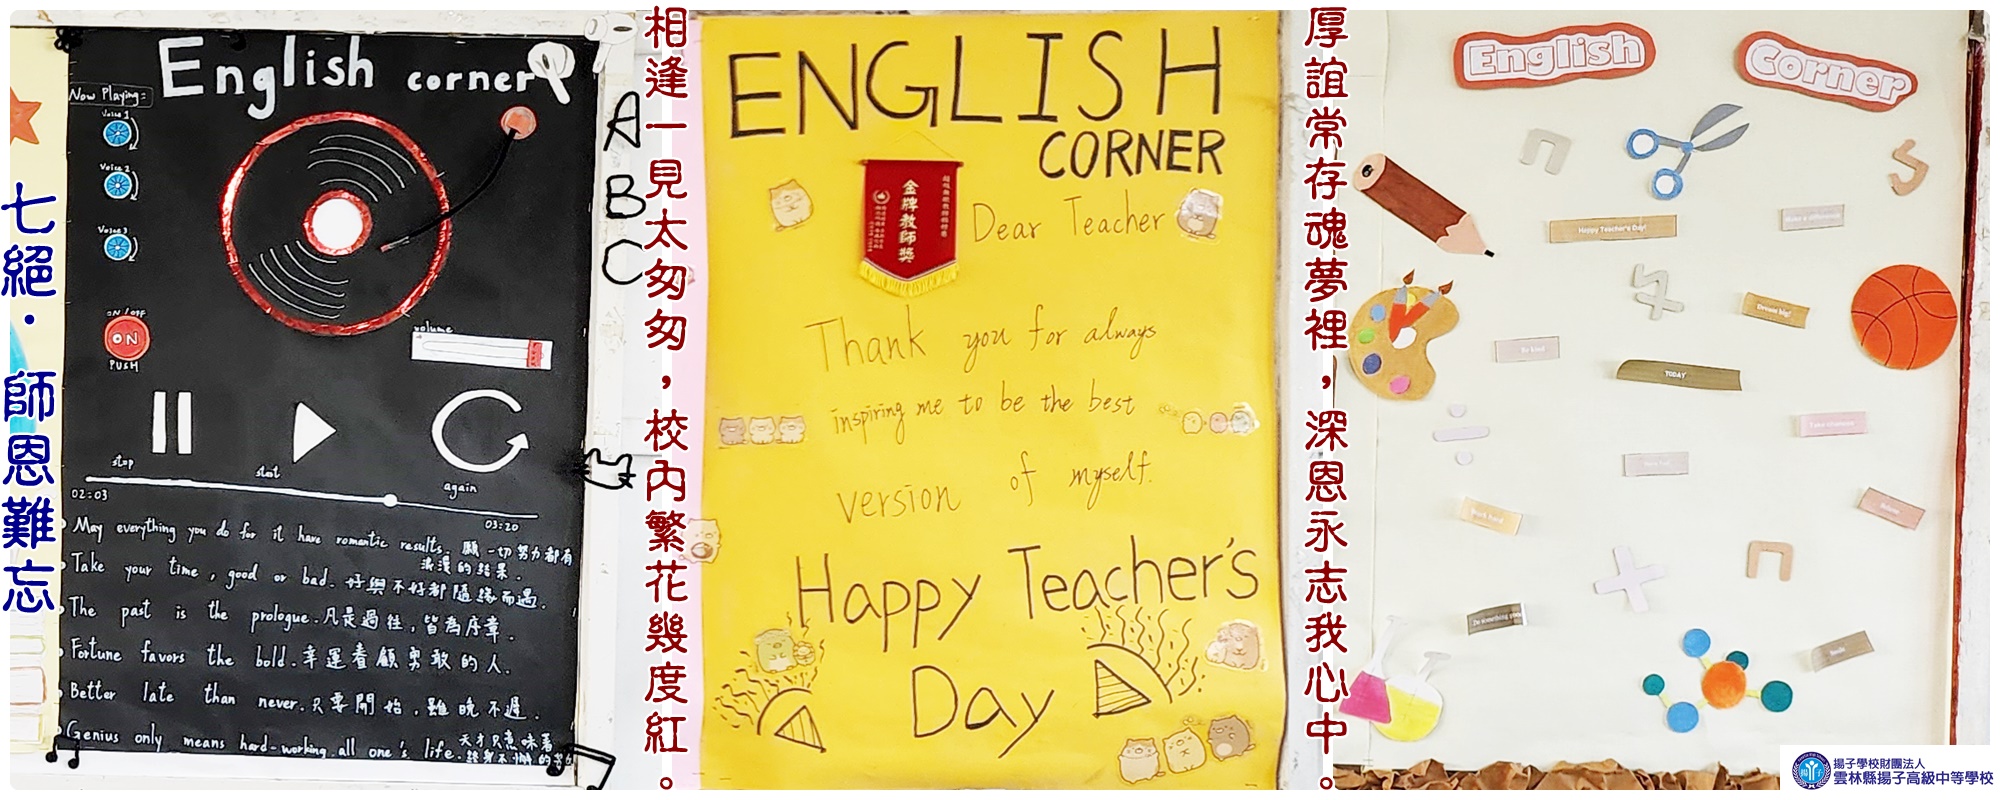 七絕．師恩難忘
English corner
Now Playing:
Voice 1
Voice 2
Voice 3
ON/OFF
ON
PUSH
volume
stop
again
02:03
03:20
May everything you do for it have romantic results. 願一切努力都有
浪漫的結果.
Take your time, good or bad. 好與不好都隨緣而遇.
The past is the prologue. 凡是過往，皆為序章.
Fortune favors the bold. 幸運眷顧勇敢的人.
Better late than never. 只要開始，雖晚不遲.
Genius only means hard-working all one's life. 天才只意味著
A
B
C
相逢一見太匆匆，校內繁花幾度紅。
ENGLISH
CORNER
金牌教師獎
Dear Teacher
Thank you for always
inspiring me to be the best
version of myself.
Happy Teacher's
Day
厚誼常存魂夢裡，深恩永志我心中。
English Corner
Happy Teacher's Day!
Make a difference
Dream big!
Be kind
TODAY
Take chances
Work hard
Do something good
Smile
揚子學校財團法人
雲林縣揚子高級中等學校